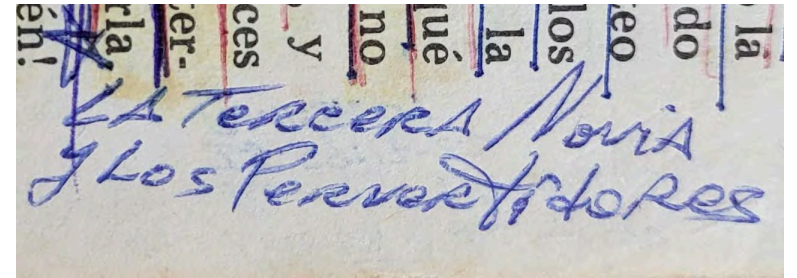 o la
do
teo
los
la
qué
no
y
ces
ter-
rla,
én!
LA TERCERA NoviA
y Los PERVERtidoRES